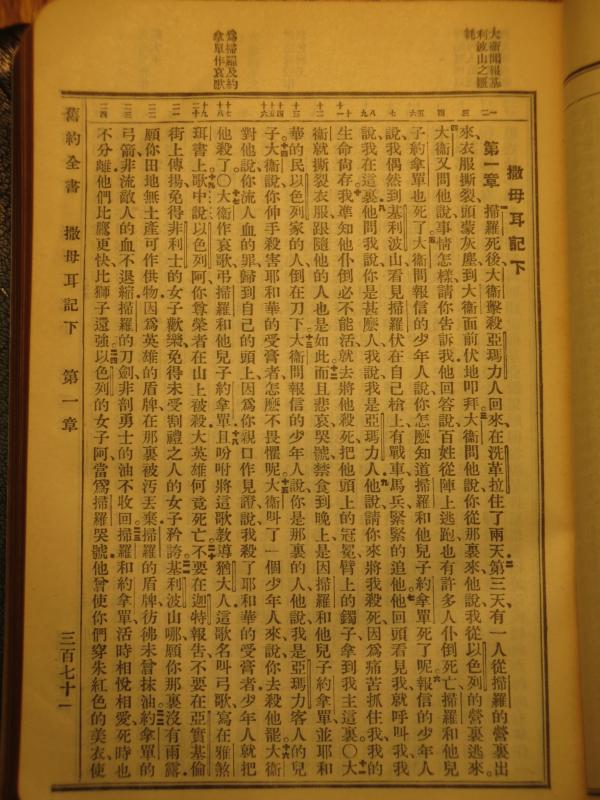 大衛聞報基
利波山之
耗
爲掃羅及約
拿單作哀歌
撒母耳記下
第一章 掃羅死後、大衛擊殺亞瑪力人回來、在洗革拉住了兩天、第三天、有一人從掃羅的營裏出
來、衣服撕裂、頭蒙灰塵、到大衛面前伏地叩拜、大衛問他說、你從那裏來、他說、我從以色列的營裏逃來、
大衛又問他說、事情怎樣、請你告訴我、他回答說、百姓從陣上逃跑、也有許多人仆倒死亡、掃羅和他兒
子約拿單也死了、大衛問報信的少年人說、你怎麽知道掃羅和他兒子約拿單死了呢、報信的少年人
說、我偶然到基利波山、看見掃羅伏在自己槍上、有戰車馬兵緊緊的追他、他回頭看見我、就呼叫我、我
說、我在這裏、他問我說、你是甚麽人、我說、我是亞瑪力人、他說、請你來將我殺死、因爲痛苦抓住我、我的
生命尙存、我準知他仆倒必不能活、就去將他殺死、把他頭上的冠冕、臂上的鐲子、拿到我主這裏、〇大
衛就撕裂衣服、跟隨他的人也是如此、而且悲哀哭號、禁食到晚上、是因掃羅和他兒子約拿單並耶和
華的民以色列家的人、倒在刀下、大衛問報信的少年人說、你是那裏的人、他說、我是亞瑪力客人的兒
子、大衛說、你伸手殺害耶和華的受膏者、怎麽不畏懼呢、大衛叫了一個少年人來、說、你去殺他罷、大衛
對他說、你流人血的罪歸到自己的頭上、因爲你親口作見證說、我殺了耶和華的受膏者、少年人就把
他殺了、〇大衛作哀歌、弔掃羅和他兒子約拿單、且吩咐將這歌敎導猶大人、這歌名叫弓歌、寫在雅煞
珥書上、歌中說、以色列阿、你尊榮者在山上被殺、大英雄何竟死亡、不要在迦特報告、不要在亞實基倫
街上傳揚、免得非利士的女子歡樂、免得未受割禮之人的女子矜誇、基利波山哪、願你那裏沒有雨露、
願你田地無土產可作供物、因爲英雄的盾牌在那裏被汚丟棄、掃羅的盾牌彷彿未曾抹油、約拿單的
弓箭非流敵人的血不退縮、掃羅的刀劍非剖勇士的油不收回、掃羅和約拿單、活時相悅相愛、死時也
不分離、他們比鷹更快、比獅子還強、以色列的女子阿、當爲掃羅哭號、他曾使你們穿朱紅色的美衣、使
舊約全書 撒母耳記下 第一章 三百七十一